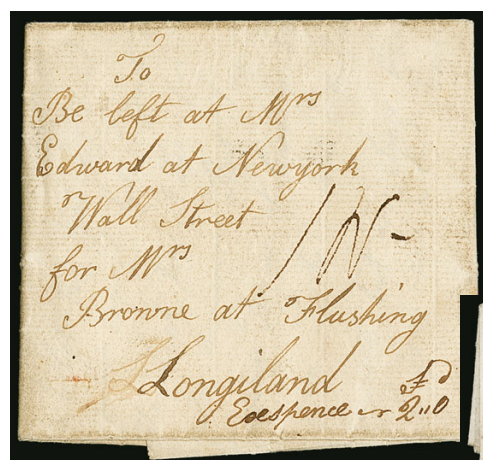 To
Be left at Mrs
Edward at Newyork
Wall Street
for Mrs
Browne at Flushing
Longiland
Exespence 2"0